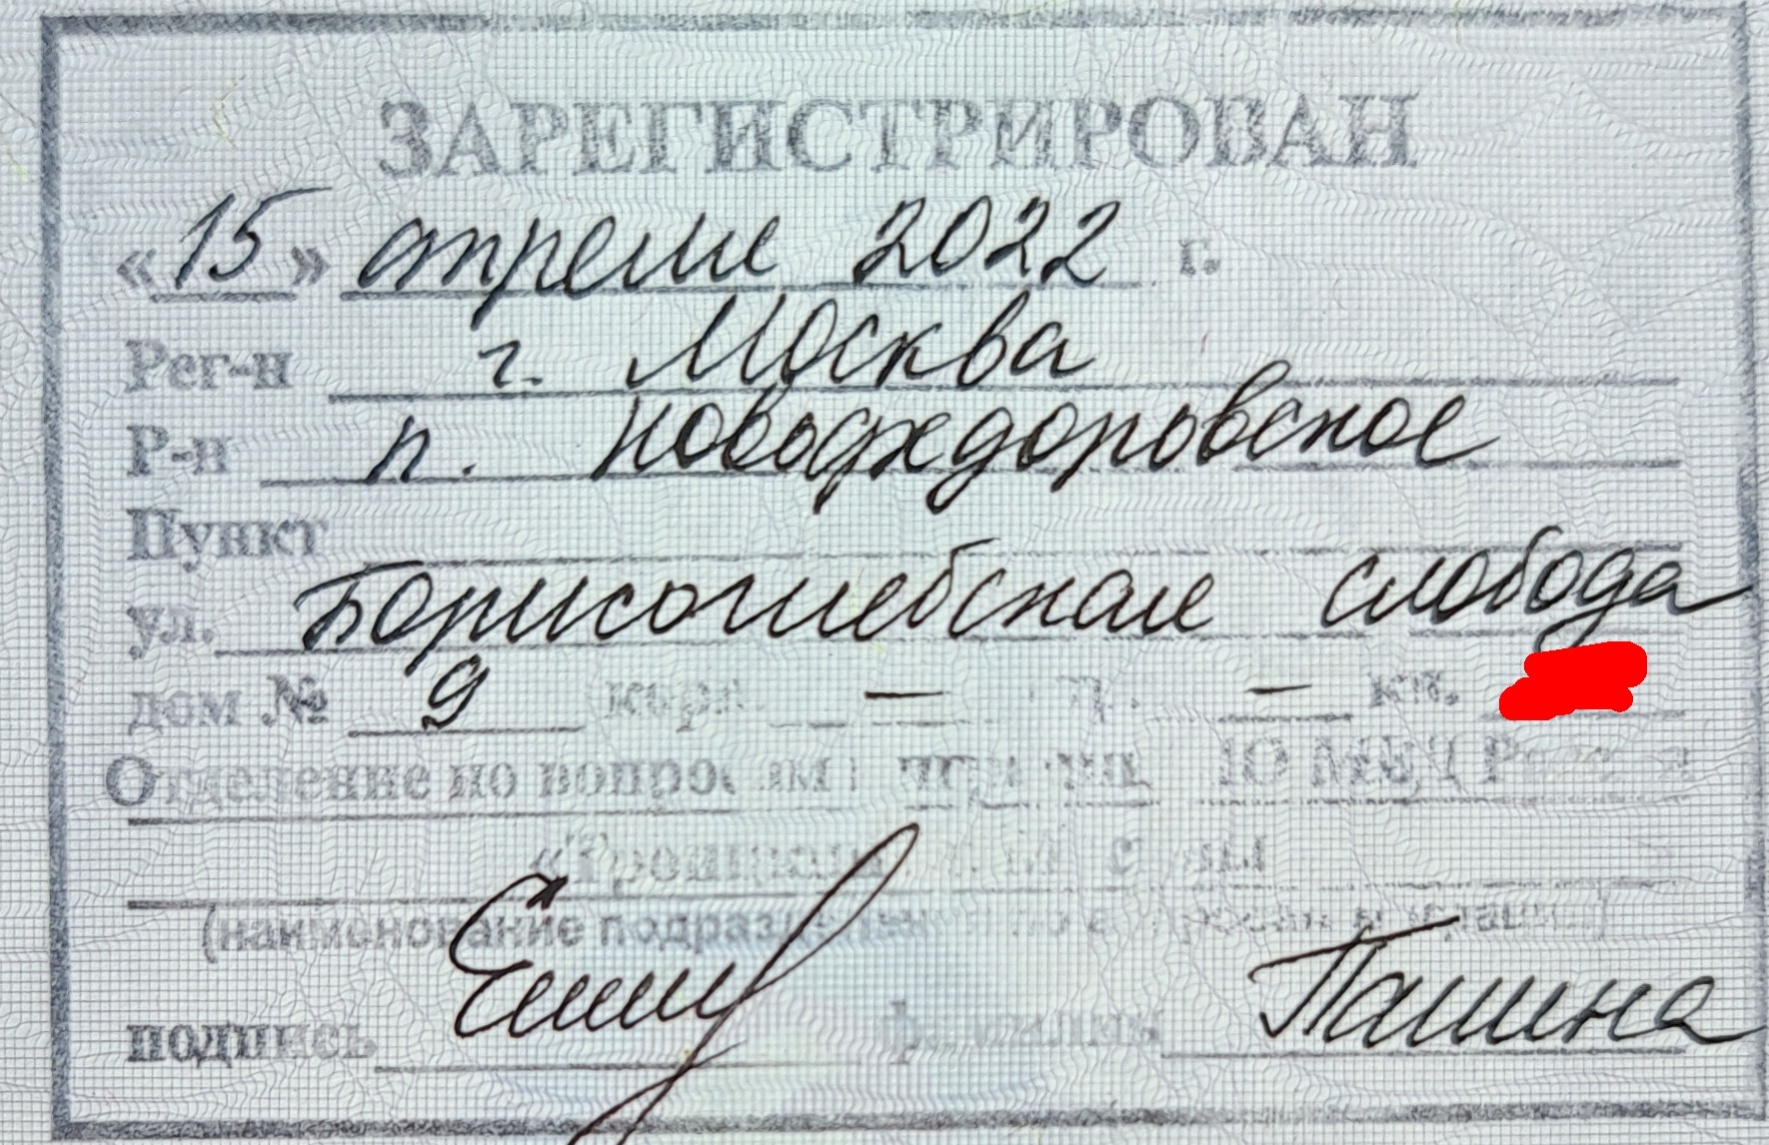 ЗАРЕГИСТРИРОВАН
«15» апреля 2022 г.
Рег-н г. Москва
Р-н п. Новофедоровское
Пункт
ул. Борисоглебская слобода
дом № 9 корп. — — кв.
Отделение по вопросам МВД России
«Троицкий
(наименование подразделения по вопросам миграции)
подпись фамилия Пашина